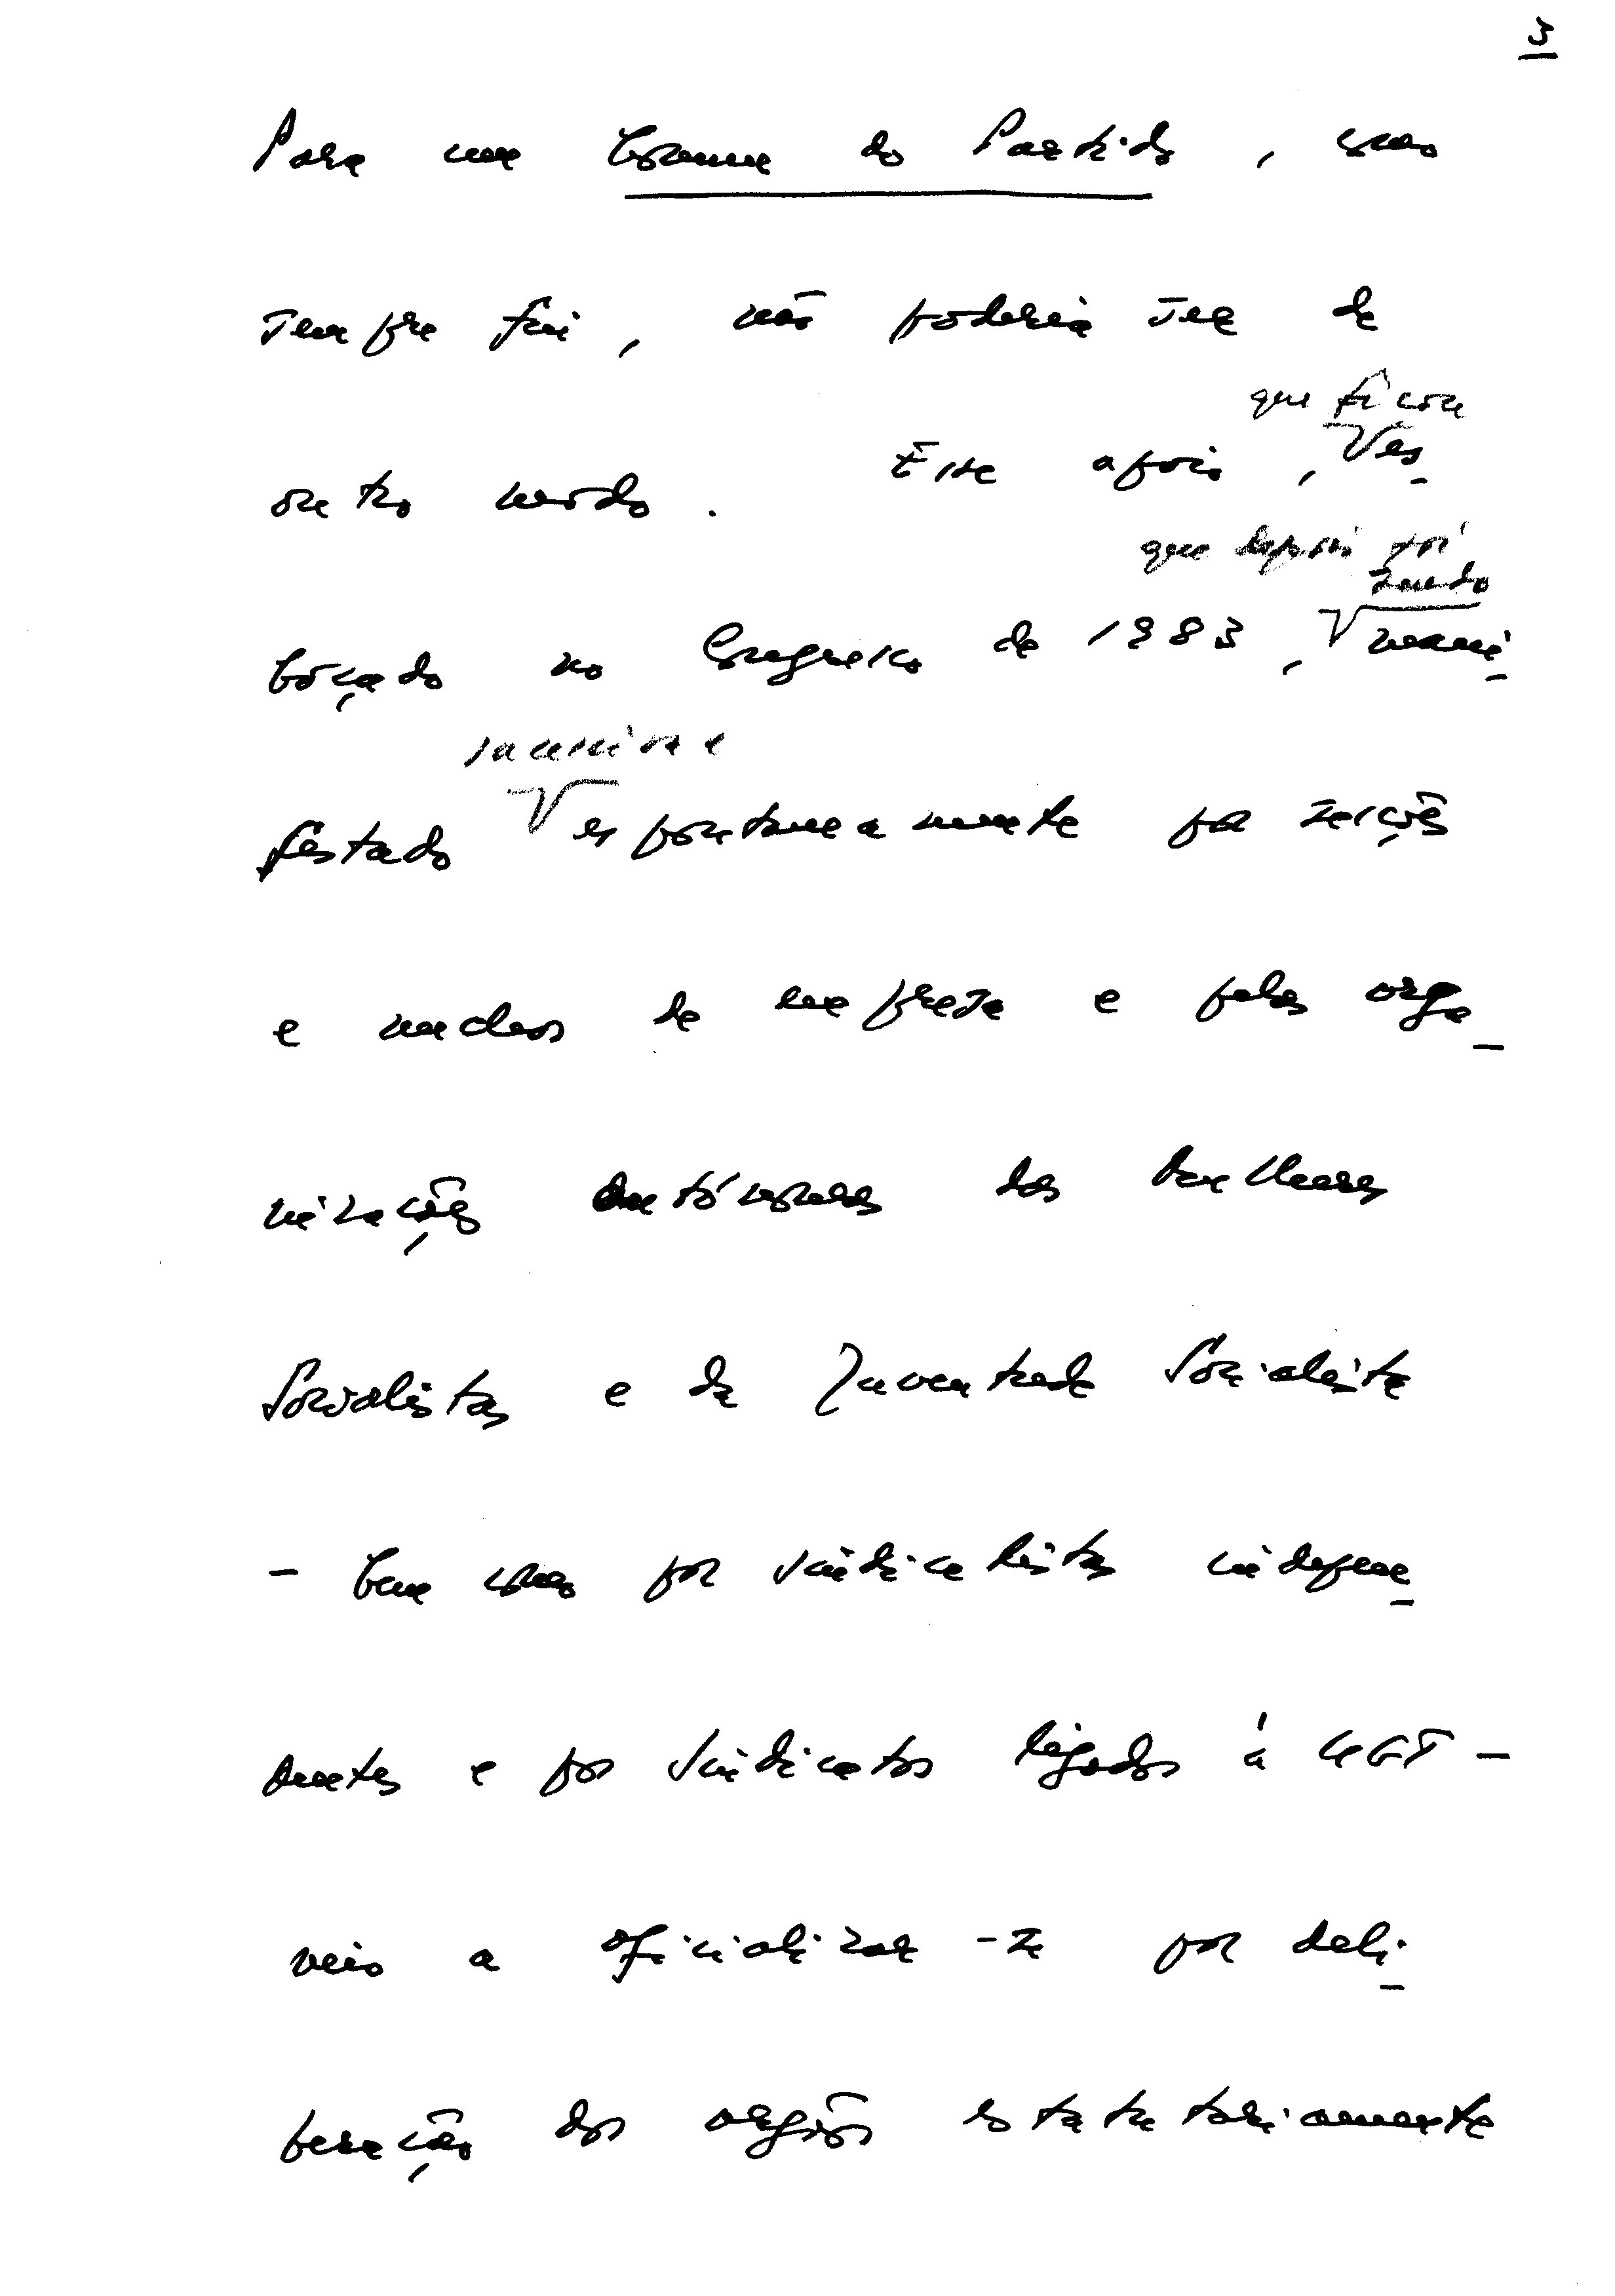 3
Para um homem do Partido, como
sempre fui, não poderia ser de
que ficou
outro modo. Esse apoio, es-
que depois foi
sendo
boçado no Congresso de 1983, mani-
sucessiva e
festado espontaneamente por secções
e núcleos de empresa e pelas orga-
nizações autónomas das Mulheres
Socialistas e da Juventude Socialista
- bem como por sindicalistas indepen-
dentes e por sindicatos ligados à UGT -
veio a oficializar-se por deli-
beração dos orgãos estatutariamente